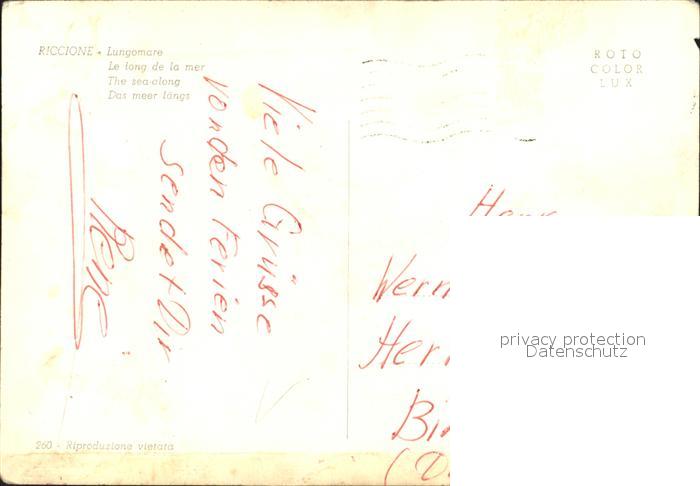 RICCIONE - Lungomare
Le long de la mer
The sea-along
Das meer längs
ROTO
COLOR
LUX
Viele Grüsse
von den Ferien
sendet Dir
Herr
Wern
Her
Bi
(D
privacy protection
Datenschutz
260 - Riproduzione vietata